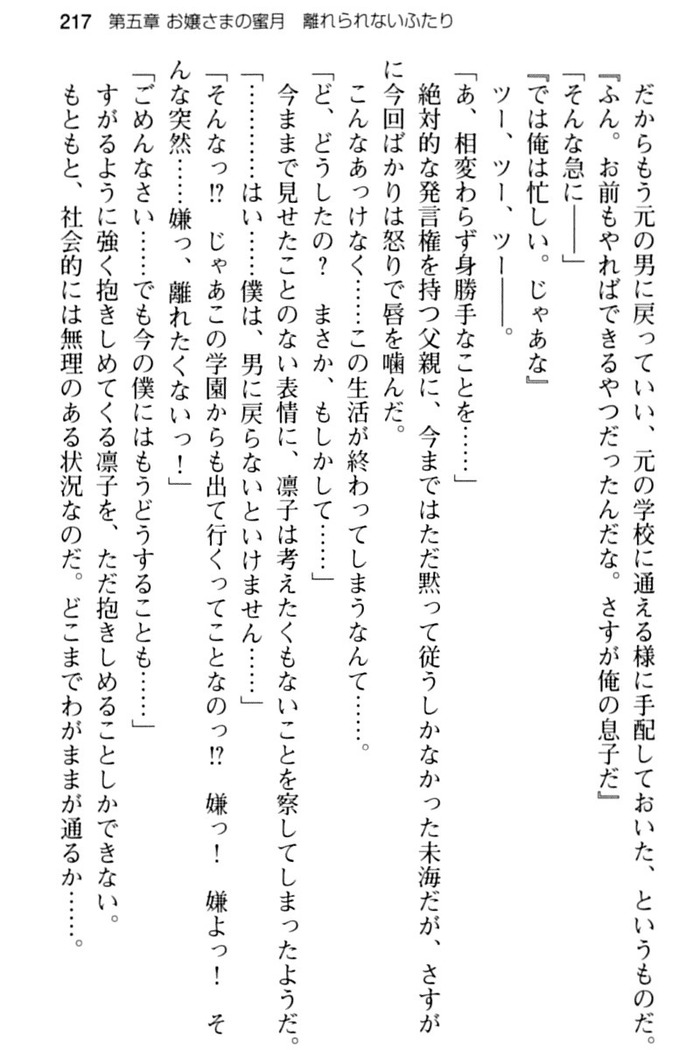 217 第五章 お嬢さまの蜜月　離れられないふたり
だからもう元の男に戻っていい、元の学校に通える様に手配しておいた、というものだ。
『ふん。お前もやればできるやつだったんだな。さすが俺の息子だ』
「そんな急に――」
『では俺は忙しい。じゃあな』
ツー、ツー、ツー――。
「あ、相変わらず身勝手なことを……」
絶対的な発言権を持つ父親に、今まではただ黙って従うしかなかった未海だが、さすが
に今回ばかりは怒りで唇を噛んだ。
こんなあっけなく……この生活が終わってしまうなんて……。
「ど、どうしたの？　まさか、もしかして……」
今まで見せたことのない表情に、凛子は考えたくもないことを察してしまったようだ。
「…………はい……僕は、男に戻らないといけません……」
「そんなっ!?　じゃあこの学園からも出て行くってことなのっ!?　嫌っ！　嫌よっ！　そ
んな突然……嫌っ、離れたくないっ！」
「ごめんなさい……でも今の僕にはもうどうすることも……」
すがるように強く抱きしめてくる凛子を、ただ抱きしめることしかできない。
もともと、社会的には無理のある状況なのだ。どこまでわがままが通るか……。